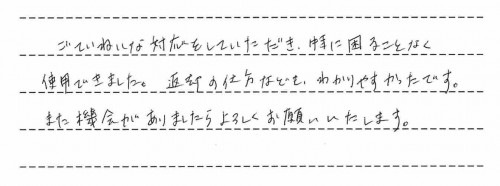 ごていねいな対応をしていただき、特に困ることなく
使用できました。返却の仕方なども、わかりやすかったです。
また機会がありましたらよろしくお願いいたします。